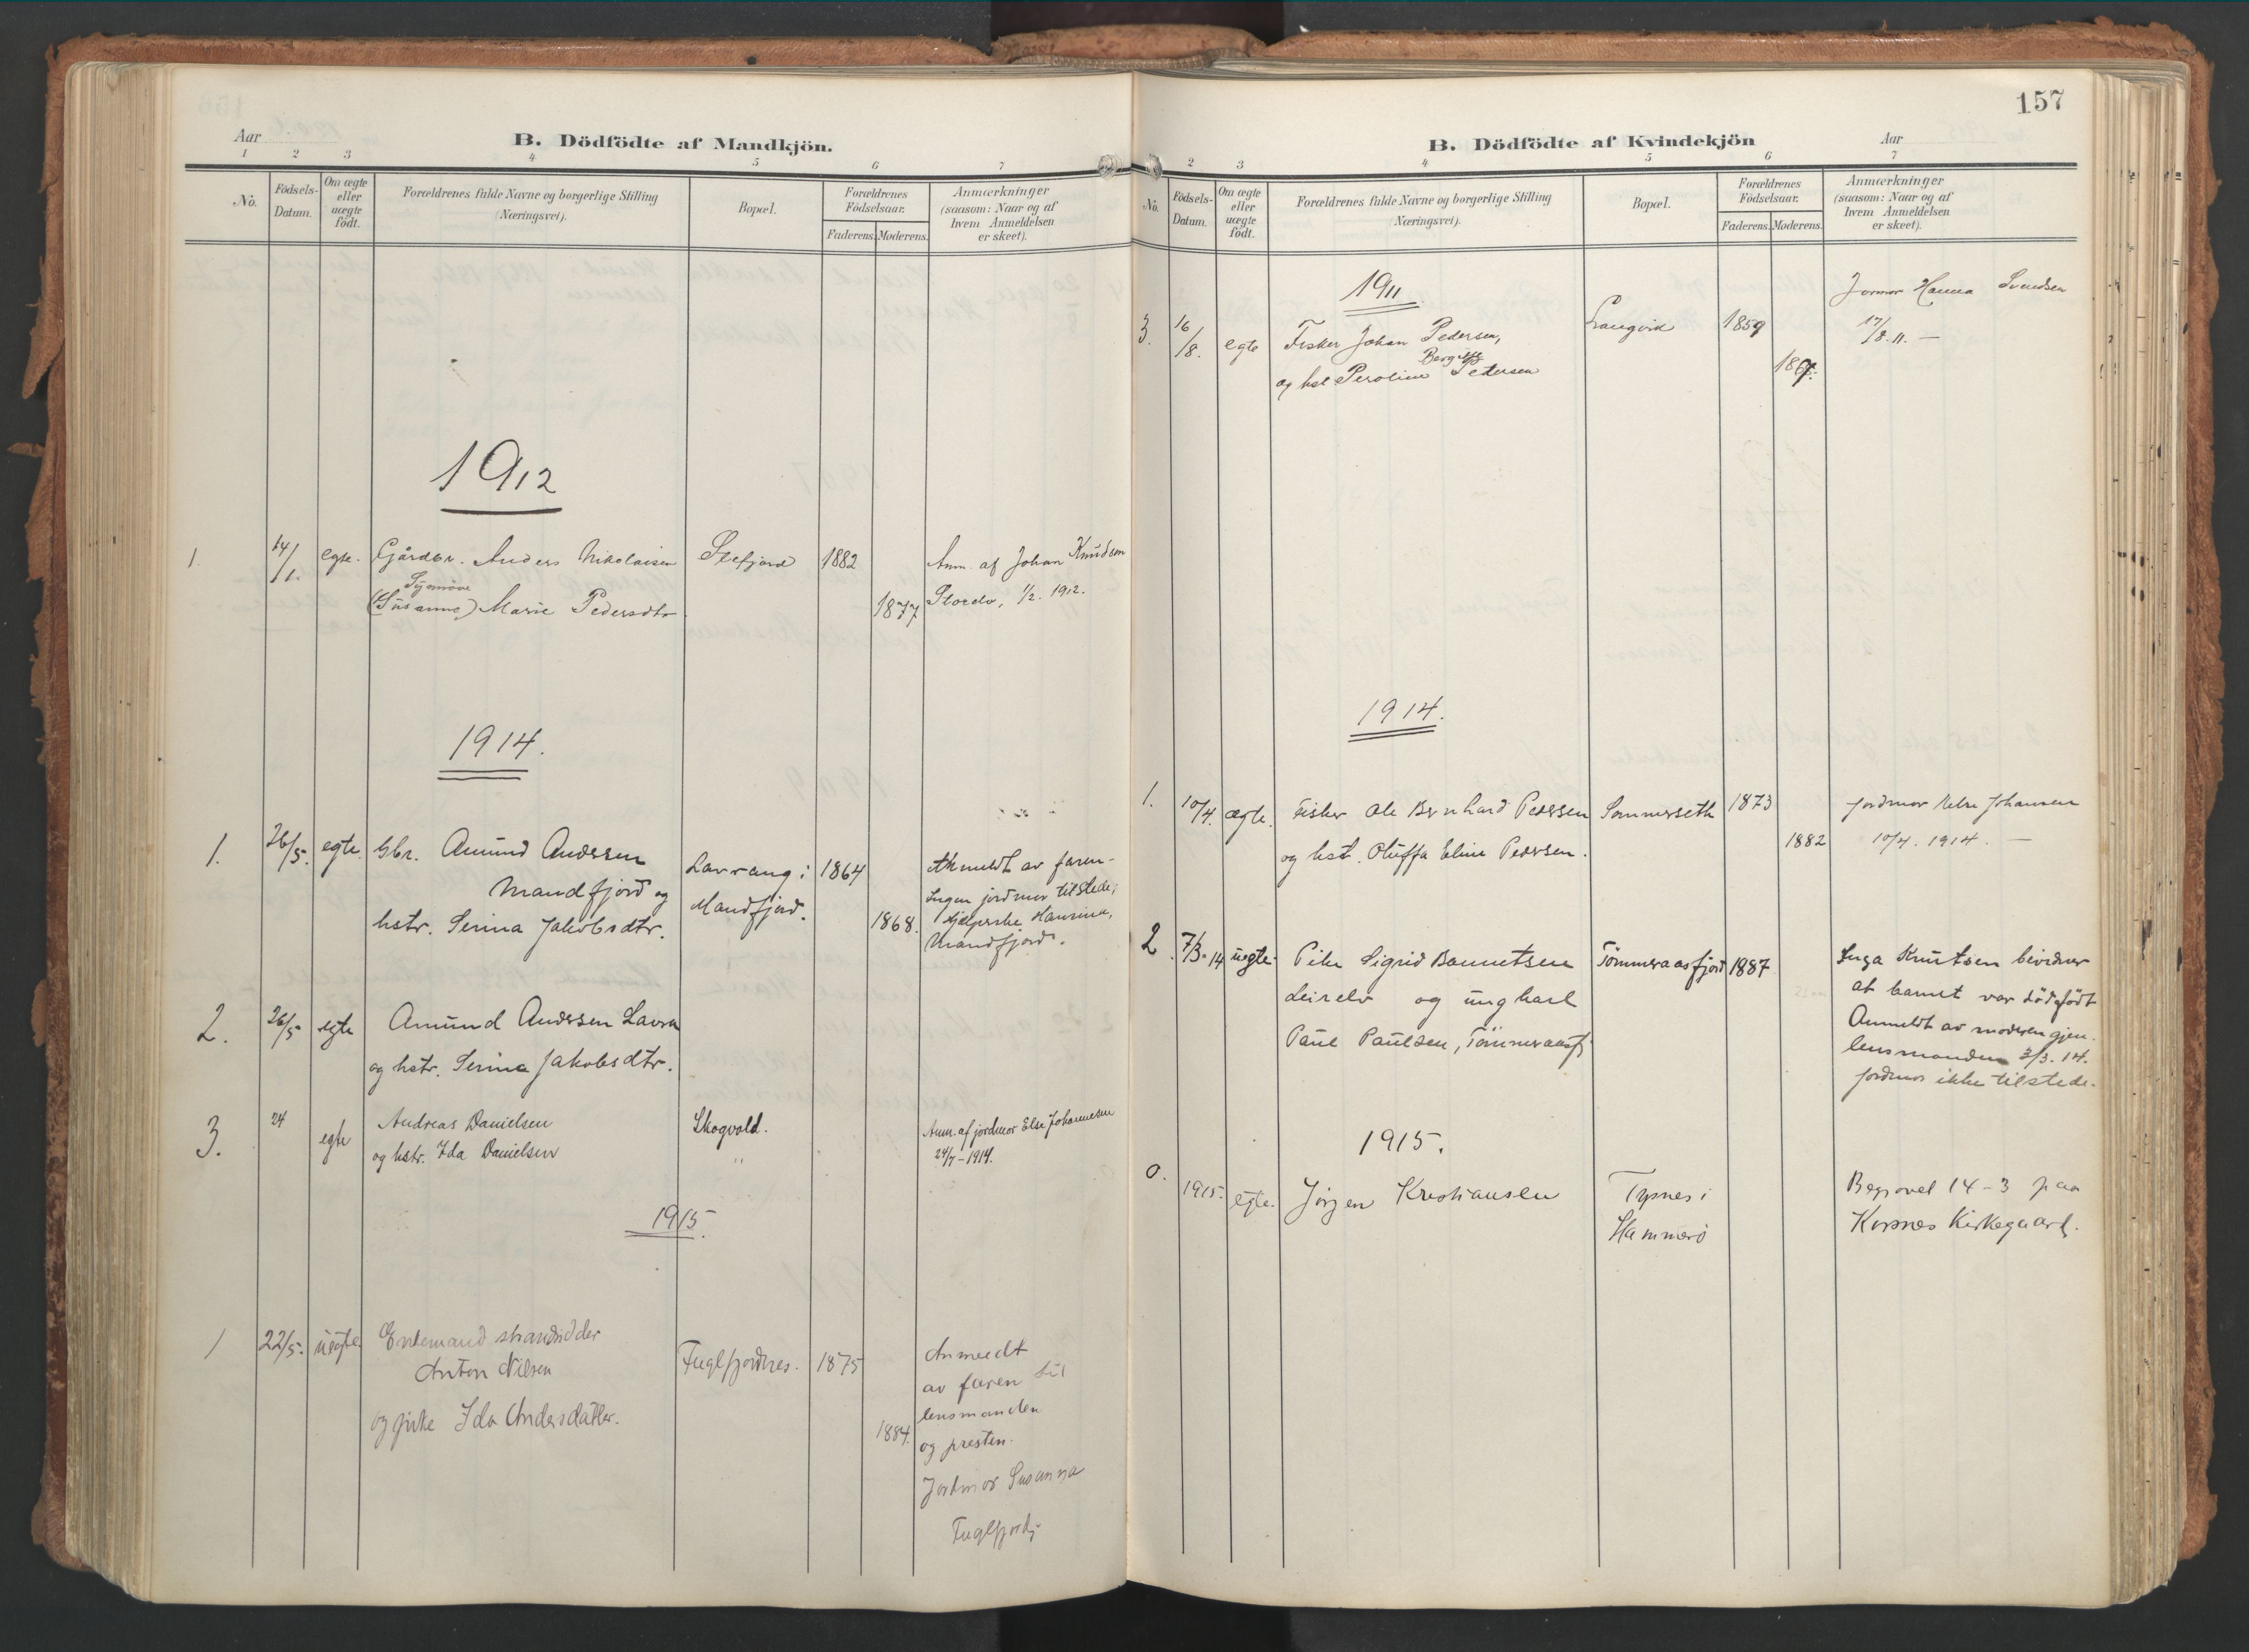 Aar
B. Dödfödte af Mandkjön.
1 2 3 4 5 6 7
No.
Födsels-
Datum.
Om ægte
eller
uægte
født.
Forældrenes fulde Navne og borgerlige Stilling
(Næringsvei).
Bopæl.
Forældrenes
Födselsaar.
Faderens. Moderens.
Anmærkninger
(saasom: Naar og af
hvem Anmeldelsen
er skeet).
1912
1. 14/1. egte. Gårdbr. Anders Nikolaisen
Stefjord 1882
Synnöve
(Susanne) Marie Pedersdtr.
1877
Anm. af Johan Knudsen
Storelv, 1/2. 1912.
1914.
1. 26/5. egte. Gbr. Amund Andersen
Mandfjord og
hstr. Serina Jakobsdtr.
Lavrang i
Mandfjord.
1864
1868.
Anmeldt av faren.
Ingen jordmor tilstede;
hjelperske Hansine,
Mandfjord.
2. 26/5 egte Amund Andersen Lavra
og hstr. Serina Jakobsdtr.
3. 24 egte Andreas Danielsen
og hstr. Ida Danielsen
Skogvold.
"
Anm. af jordmor Else Johannesen
24/7-1914.
1915.
1 22/5. uegte. Enkemand strandsidder
Anton Nilsen
og pike Ida Andersdatter.
Fuglfjordnes. 1875
1884.
Anmeldt
av faren til
lensmanden
og presten.
Jordmor Susanna
Fuglfjord
157
B. Dödfödte af Kvindekjön
Aar
2 3 4 5 6 7
No.
Födsels-
Datum.
Om ægte
eller
uægte
födt.
Forældrenes fulde Navne og borgerlige Stilling
(Næringsvei).
Bopæl.
Forældrenes
Födselsaar.
Faderens. Moderens.
Anmærkninger
(saasom: Naar og af
hvem Anmeldelsen
er skeet).
1911
3. 16/8. egte Fisker Johan Pedersen,
Bergitte
og hst Peroline Pedersen
Langvik 1859
Jormor Hanna Svendsen
17/8.11. —
1914.
1. 10/4. ægte. Fisker Ole Bernhard Pedersen
og hst. Oluffa Eline Pedersen.
Sommerseth 1873
1882
Jordmor Else Johansen
10/4. 1914. —
2. 7/3.14 uegte. Pike Sigrid
Leirelv og ungkarl
Paul Paulsen, Tömmeraasfj.
Tömmeraasfjord 1887
Inga Knutsen bevidner
at barnet var dödfödt
Anmeldt av moderen gjen.
lensmanden 3/3. 14.
Jordmor ikke tilstede.
1915.
0. 1915. egte. Jörgen Kristiansen
i
Hammerö
Begravet 14-3 paa
Korsnes Kirkegaard.